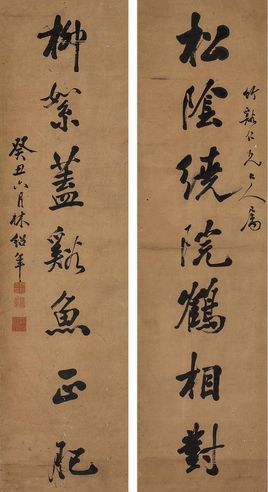 松陰繞院鶴相對
竹谿仁兄大人屬
柳絮蓋谿魚正肥
癸丑六月林紹年